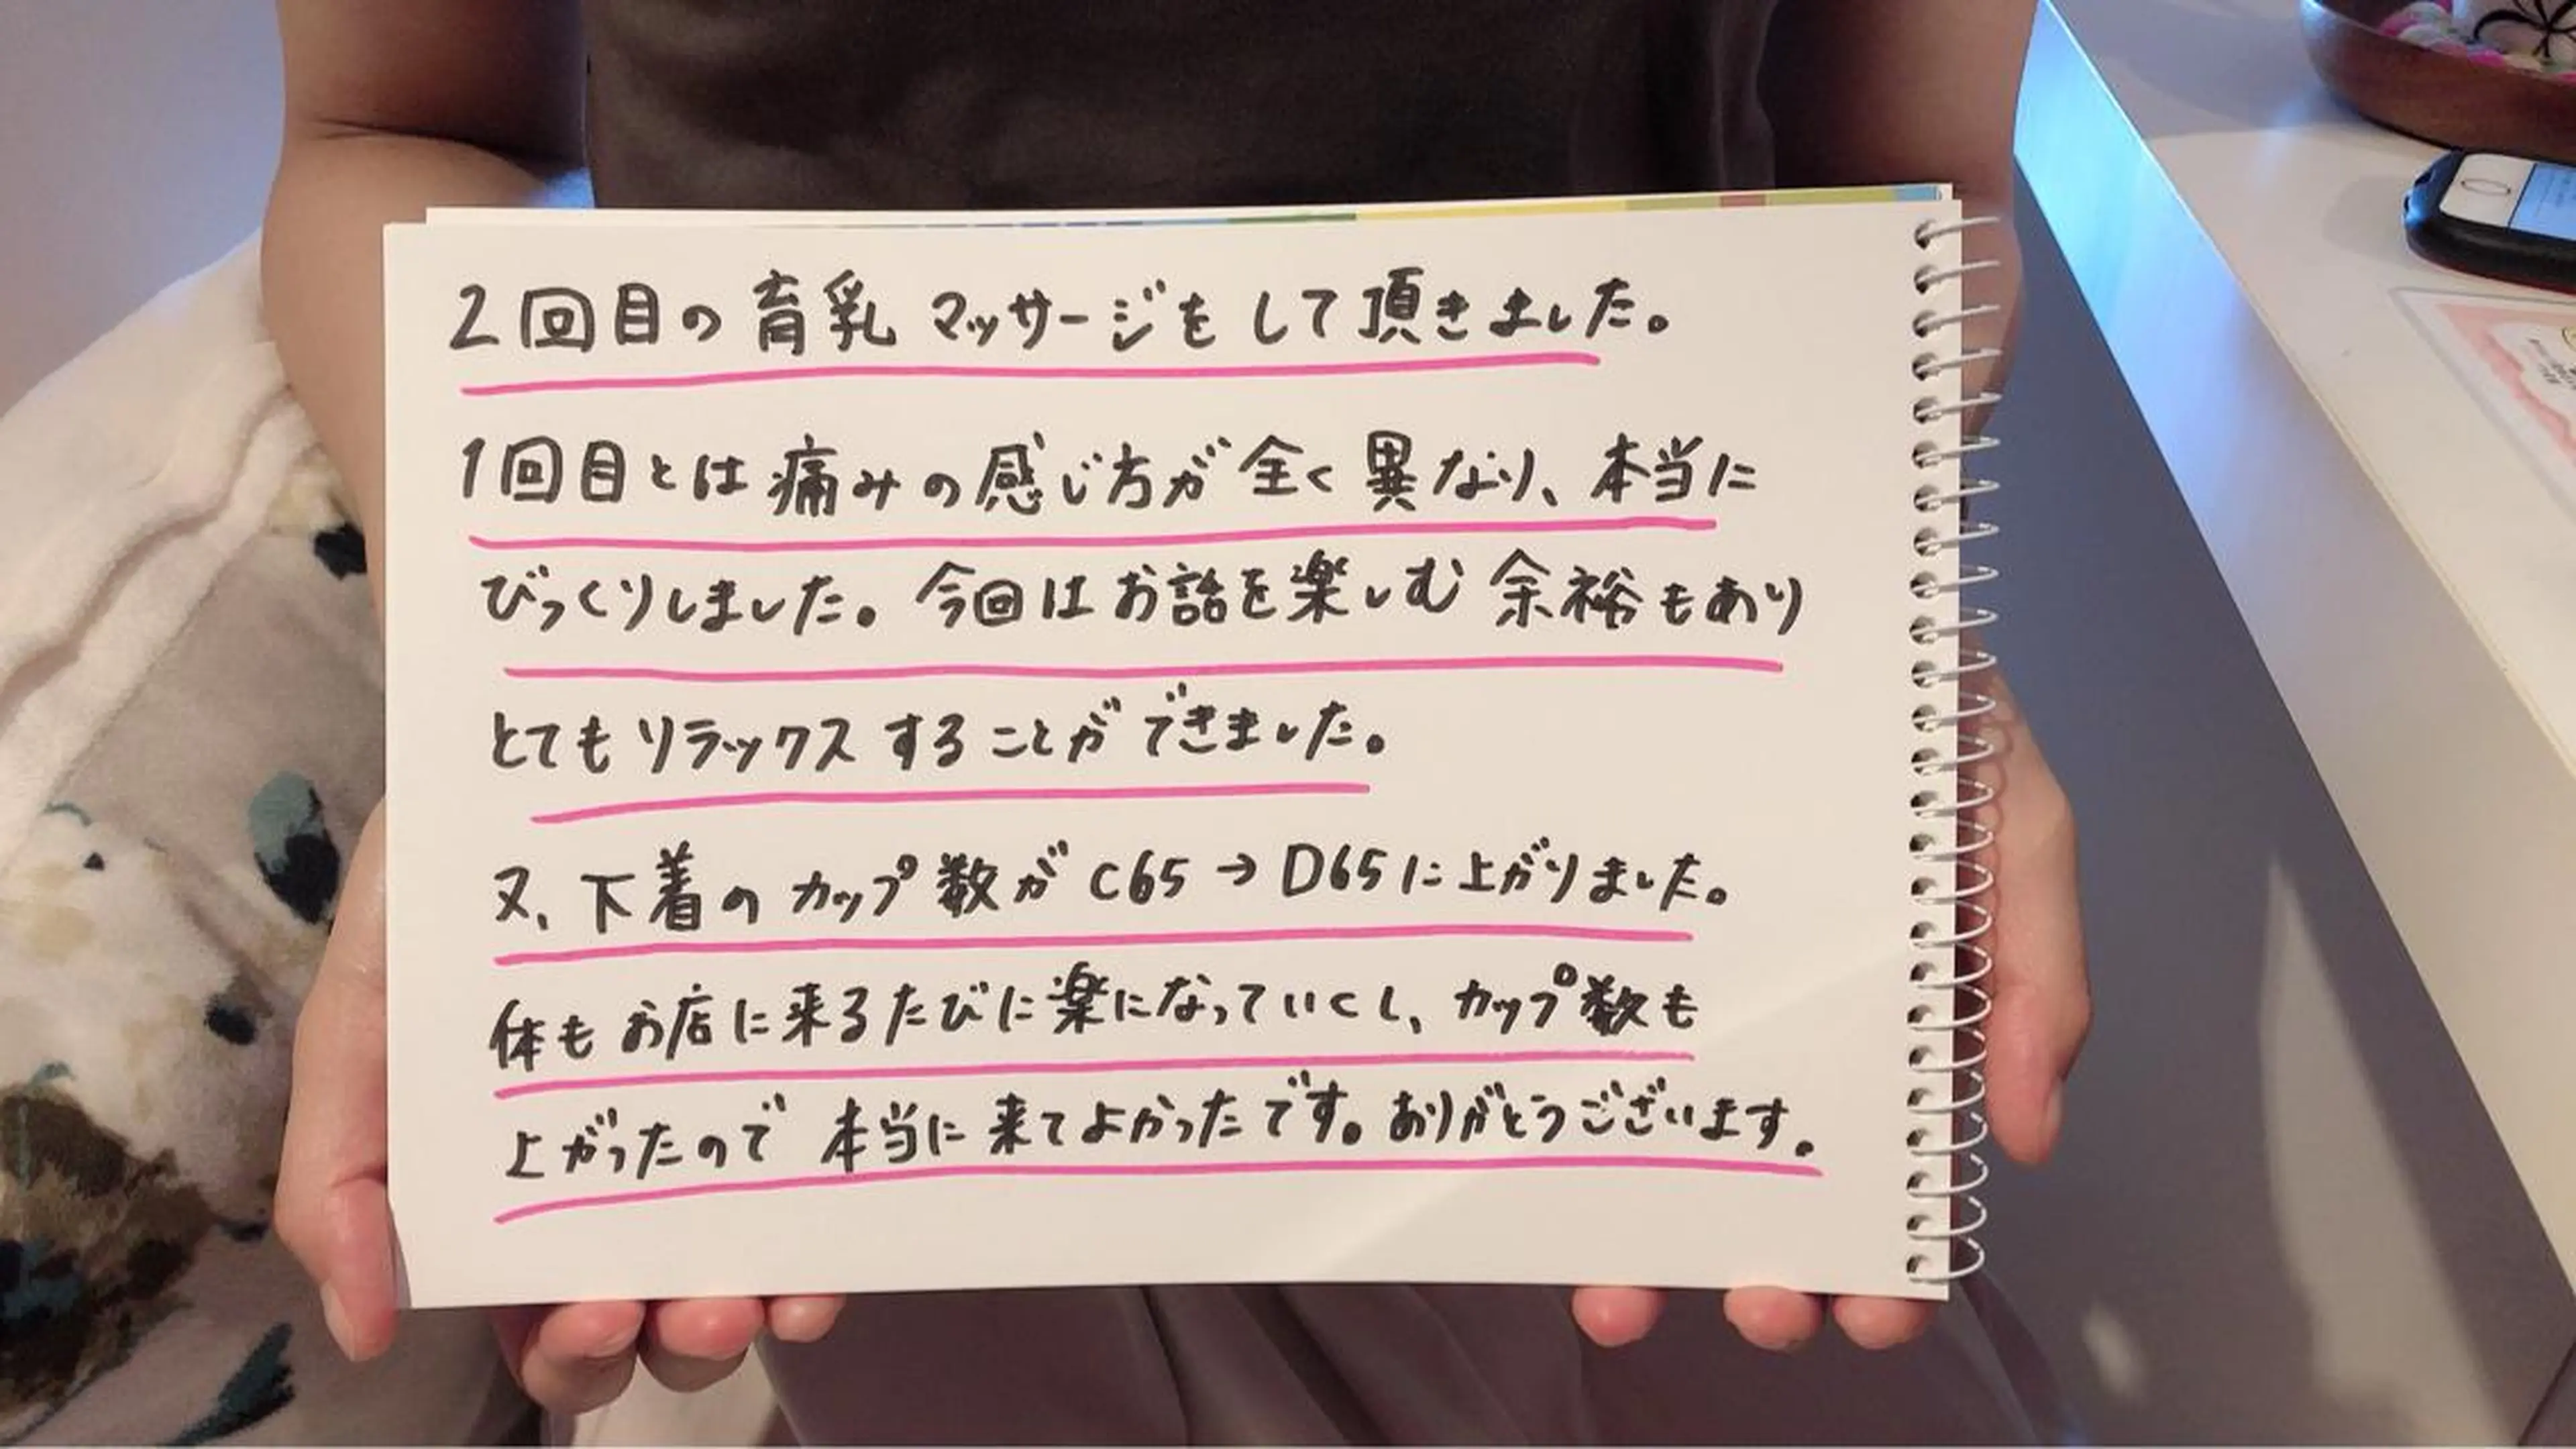 2回目の育乳マッサージをして頂きました。
1回目とは痛みの感じ方が全く異なり、本当に
びっくりしました。今回はお話を楽しむ余裕もあり
とてもリラックスすることができました。
又、下着のカップ数がC65→D65に上がりました。
体もお店に来るたびに楽になっていくし、カップ数も
上がったので本当に来てよかったです。ありがとうございます。